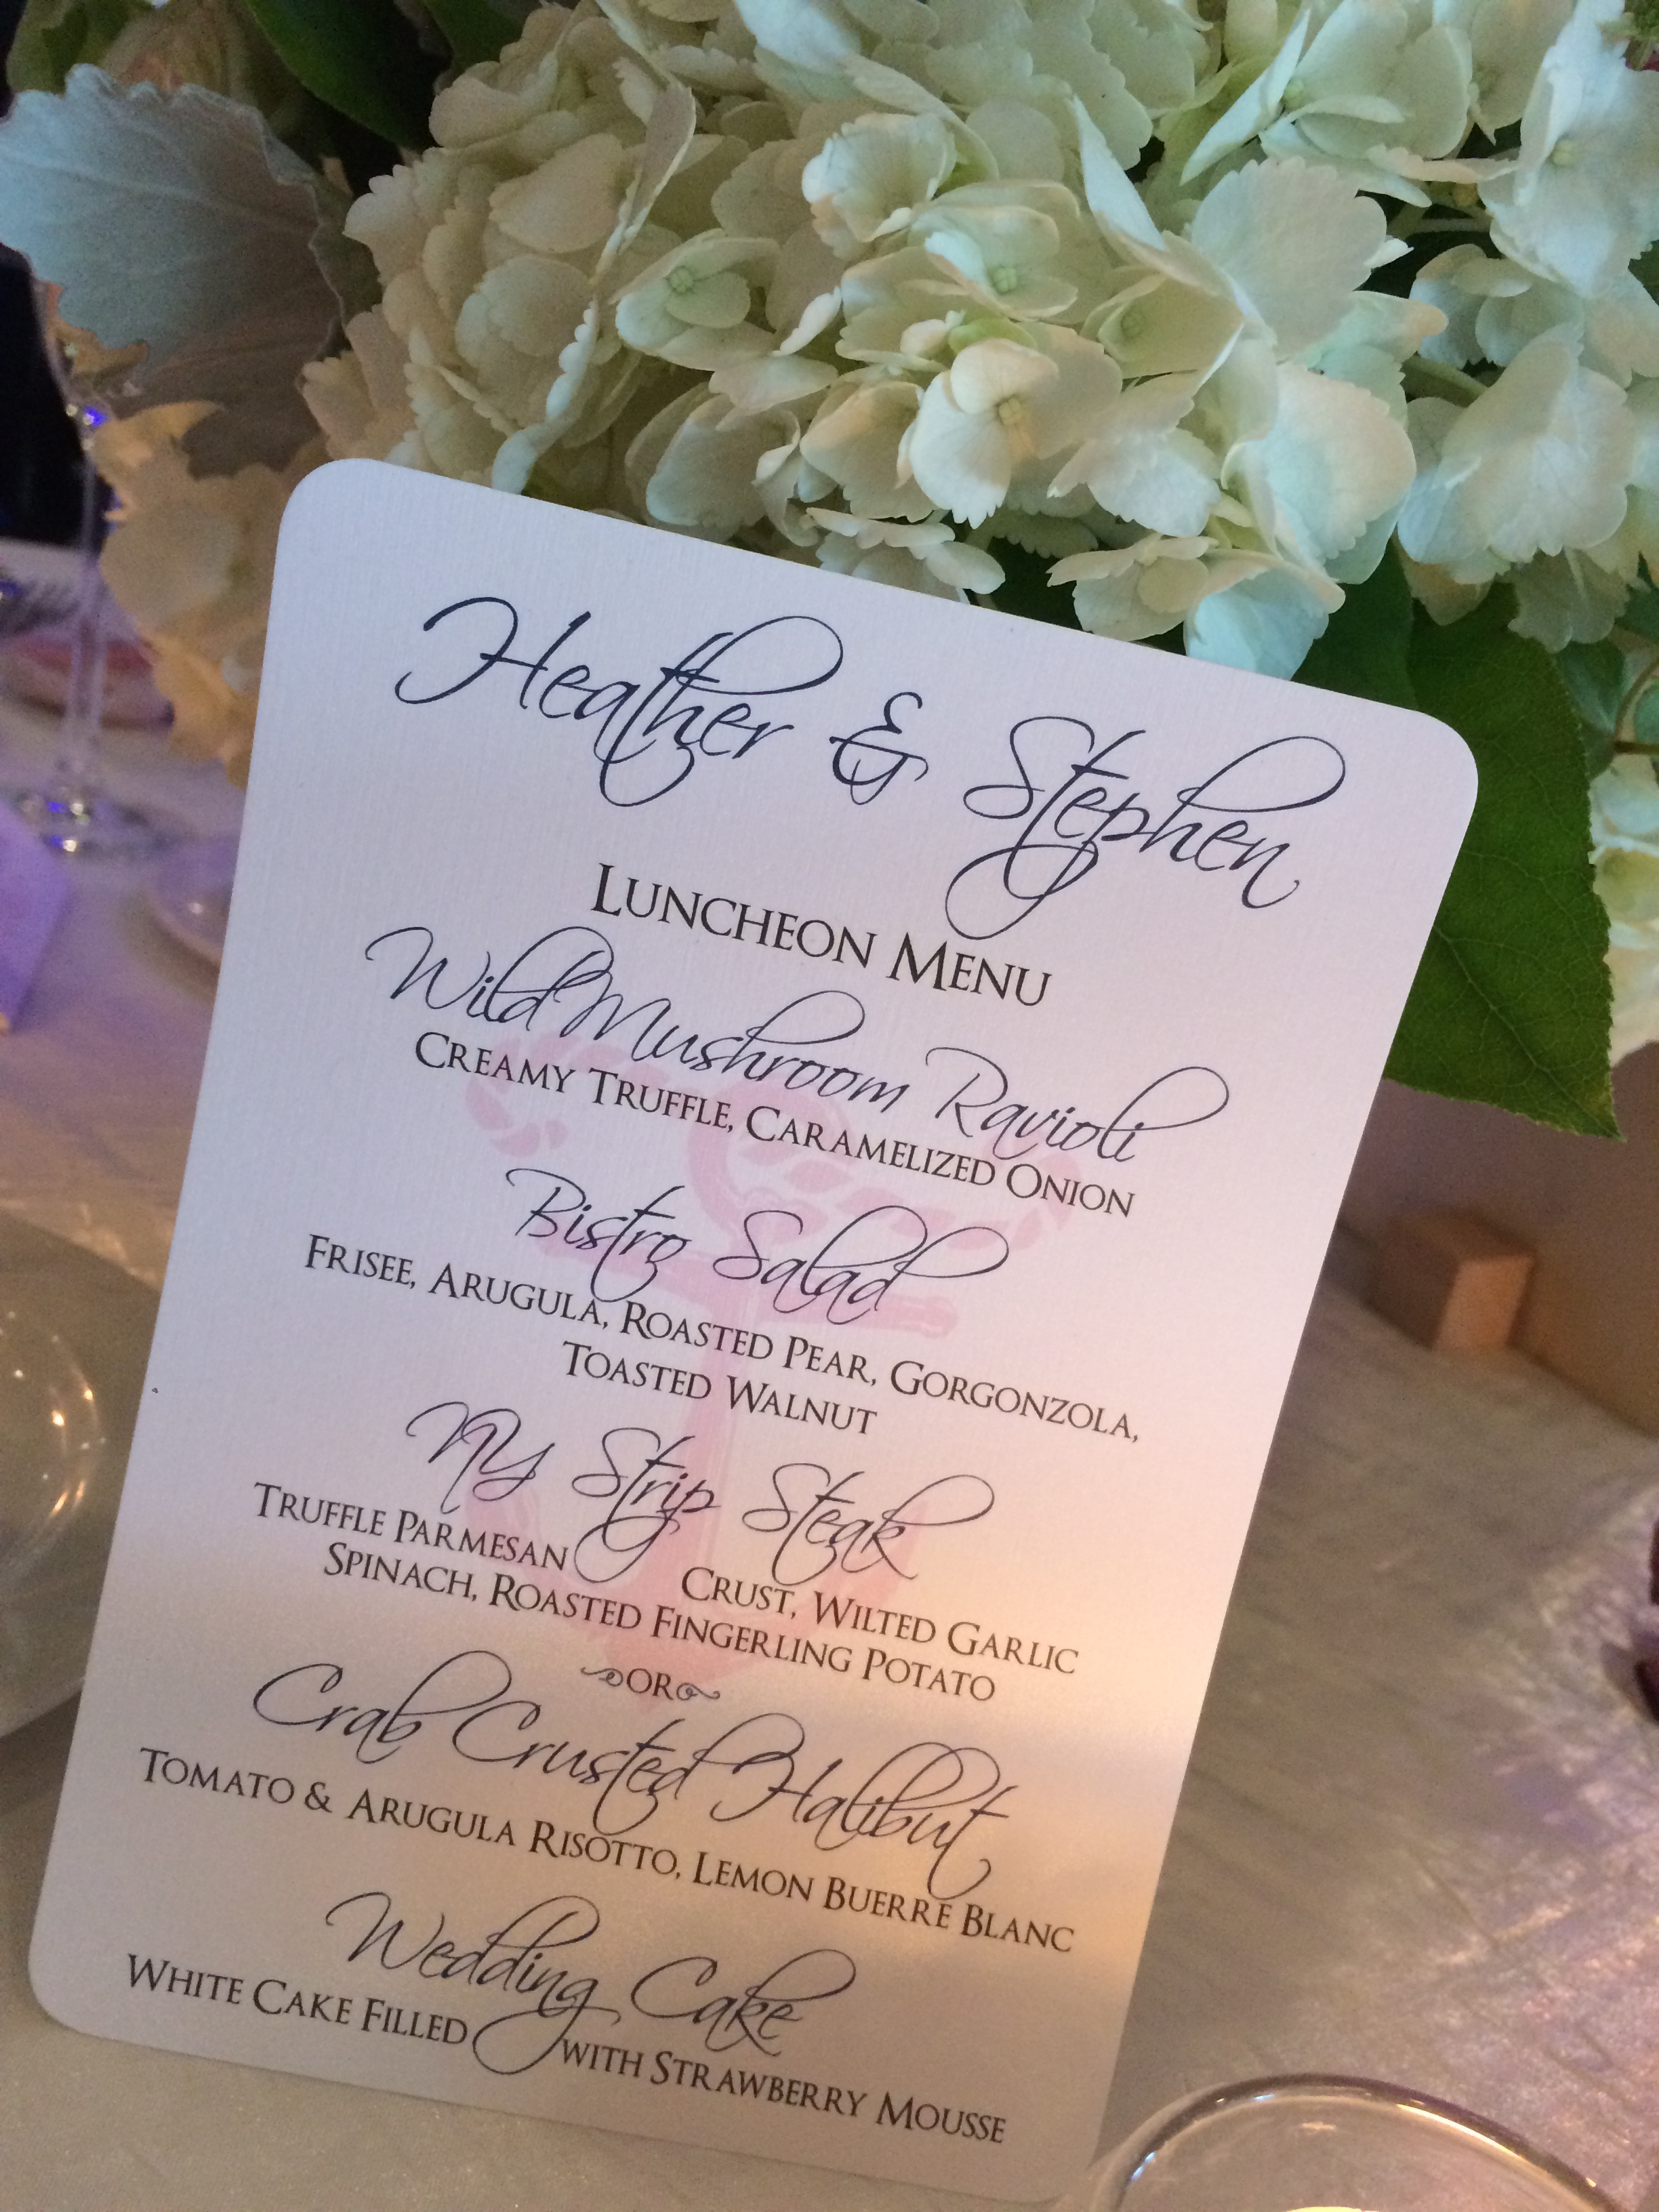 Heather & Stephen
Luncheon Menu
Wild Mushroom Ravioli
Creamy Truffle, Caramelized Onion
Bistro Salad
Frisee, Arugula, Roasted Pear, Gorgonzola,
Toasted Walnut
NY Strip Steak
Truffle Parmesan Crust, Wilted Garlic
Spinach, Roasted Fingerling Potato
OR
Crab Crusted Halibut
Tomato & Arugula Risotto, Lemon Buerre Blanc
Wedding Cake
White Cake Filled with Strawberry Mousse